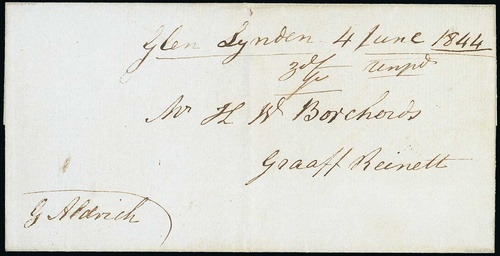 Glen Lynden 4 June 1844
Unpd
Mr H W Borcherds
Graaff Reinett
G Aldrich